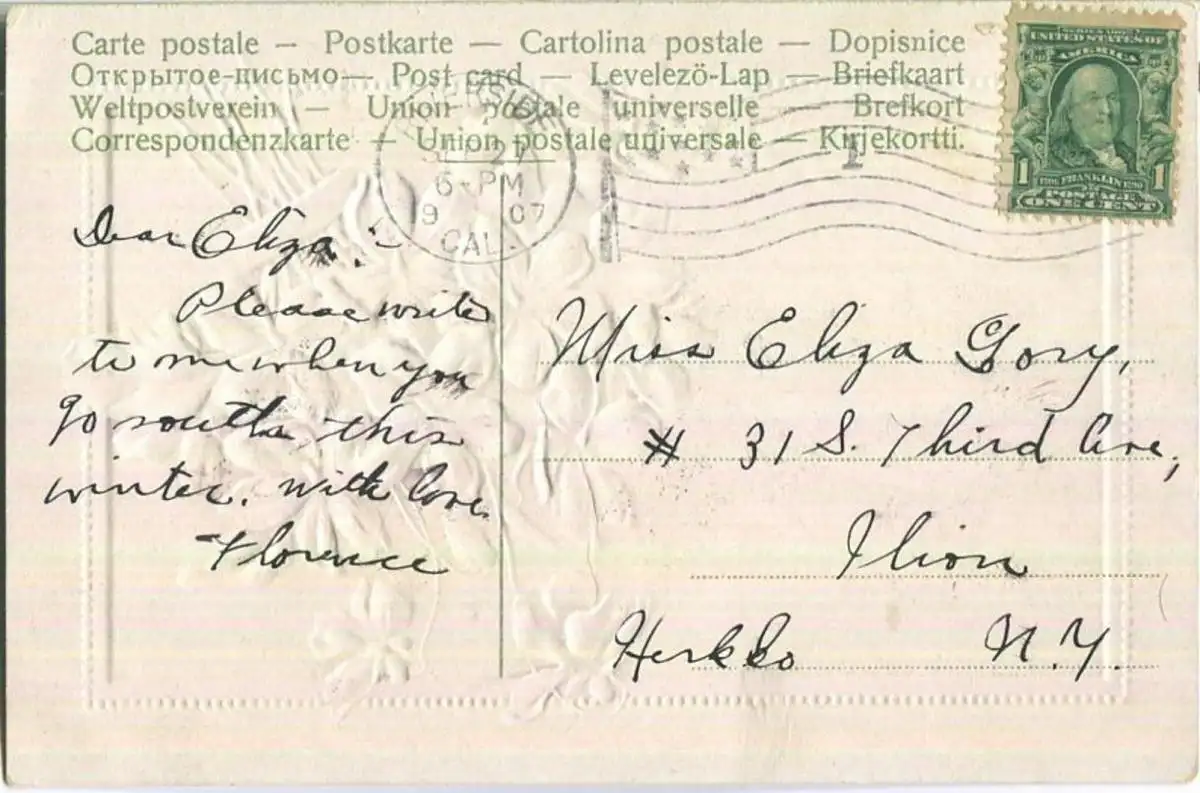 Carte postale — Postkarte — Cartolina postale — Dopisnice
Открытое-письмо — Post card — Levelezö-Lap — Briefkaart
Weltpostverein — Union postale universelle Brefkort
Correspondenzkarte — Union postale universale — Kirjekortti.
SERIES 1902
UNITED STATES OF
AMERICA
1 1
FRANKLIN
POSTAGE
ONE CENT
27
6-PM
19 07
CAL.
1
Dear Eliza:-
Please write
to me when you
go south this
winter. With love
Florence
Miss Eliza Gory,
# 31 S. Third Ave,
Ilion
Herkko N.Y.